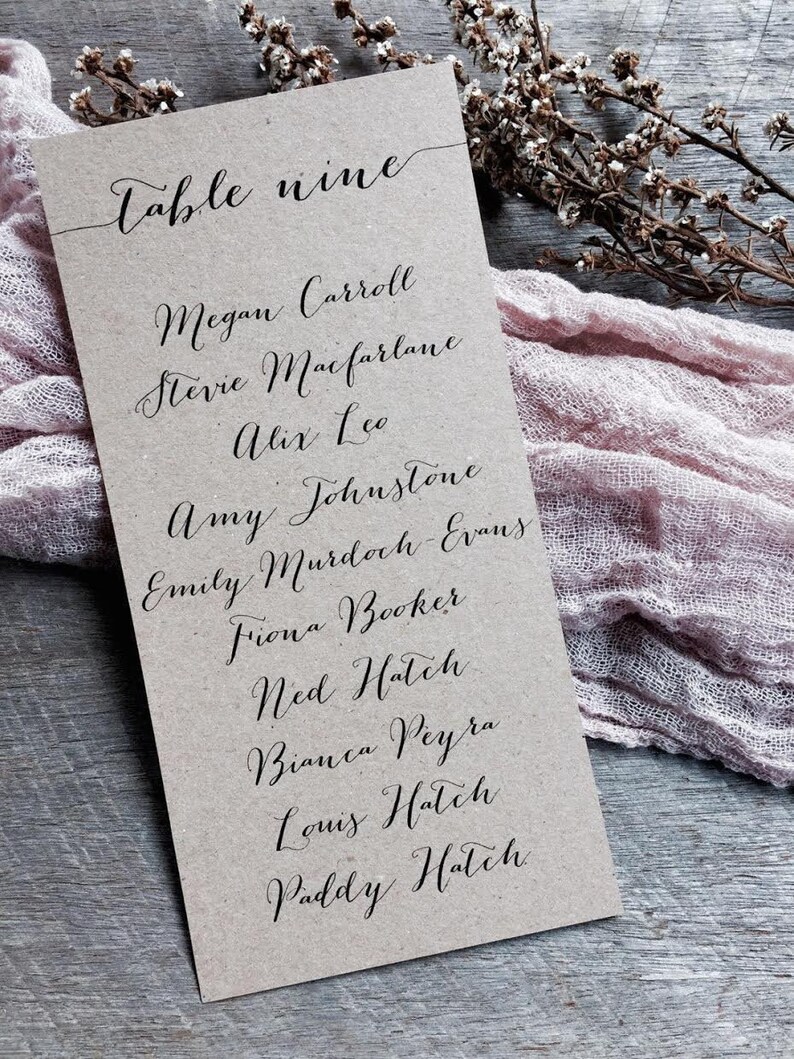 table nine
Megan Carroll
Stevie Macfarlane
Alix Leo
Amy Johnstone
Emily Murdoch-Evans
Fiona Booker
Ned Hatch
Bianca Peyra
Louis Hatch
Paddy Hatch